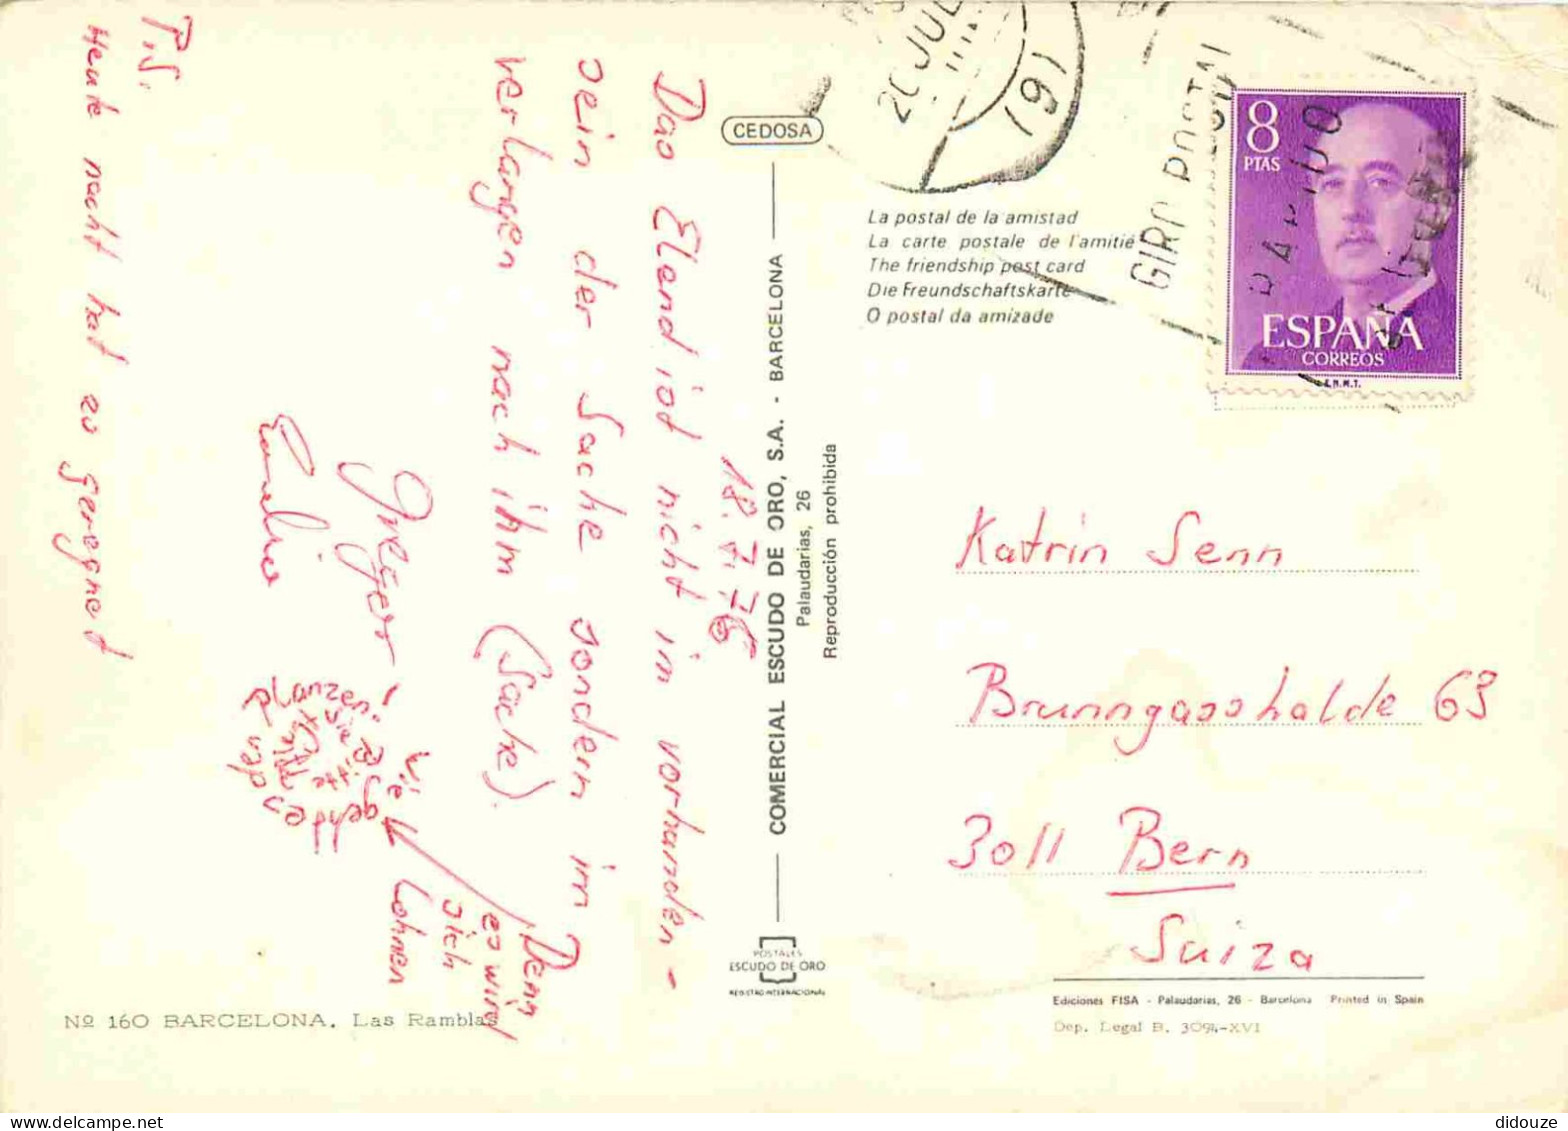 18.7.76
Das Elend ist nicht im vorhanden-
sein der Sache sondern im
verlangen nach ihm (Sache).
Emilio
P.S.
Heute nacht hat es geregnet
Denn
es wird
sich
lohnen
Nº 160 BARCELONA. Las Ramblas
CEDOSA
COMERCIAL ESCUDO DE ORO, S.A. - BARCELONA
Palaudarias, 26
Reproducción prohibida
POSTALES
ESCUDO DE ORO
REGISTRO INTERNACIONAL
La postal de la amistad
La carte postale de l'amitié
The friendship post card
Die Freundschaftskarte
O postal da amizade
20 JUL
(9)
GIRO POSTAL
8
PTAS
ESPAÑA
CORREOS
F.N.M.T.
Katrin Senn
Brunngasshalde 63
3011 Bern
Suiza
Ediciones FISA - Palaudarias, 26 - Barcelona Printed in Spain
Dep. Legal B. 3094-XVI
didouze